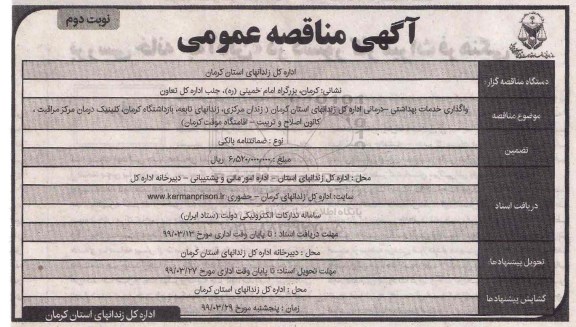 نوبت دوم
آگهی مناقصه عمومی
دستگاه مناقصه گزار:
اداره کل زندانهای استان کرمان
نشانی: کرمان، بزرگراه امام خمینی (ره)، جنب اداره کل تعاون
موضوع مناقصه
واگذاری خدمات بهداشتی –درمانی اداره کل زندانهای استان کرمان ( زندان مرکزی، زندانهای تابعه، بازداشتگاه کرمان، کلینیک درمان مرکز مراقبت ،
کانون اصلاح و تربیت – اقامتگاه موقت کرمان)
تضمین
نوع : ضمانتنامه بانکی
مبلغ : ۶٫۵۲۰٫۰۰۰٫۰۰۰ ریال
دریافت اسناد
محل : اداره کل زندانهای استان – اداره امور مالی و پشتیبانی – دبیرخانه اداره کل
سایت: اداره کل زندانهای کرمان – حضوری www.kermanprison.ir
سامانه تدارکات الکترونیکی دولت (ستاد ایران)
مهلت دریافت اسناد : تا پایان وقت اداری مورخ ۹۹/۰۳/۱۳
تحویل پیشنهادها
محل : دبیرخانه اداره کل زندانهای استان کرمان
مهلت تحویل اسناد: تا پایان وقت اداری مورخ ۹۹/۰۳/۲۷
گشایش پیشنهادها
محل : اداره کل زندانهای استان کرمان
زمان : پنجشنبه مورخ ۹۹/۰۳/۲۹
اداره کل زندانهای استان کرمان